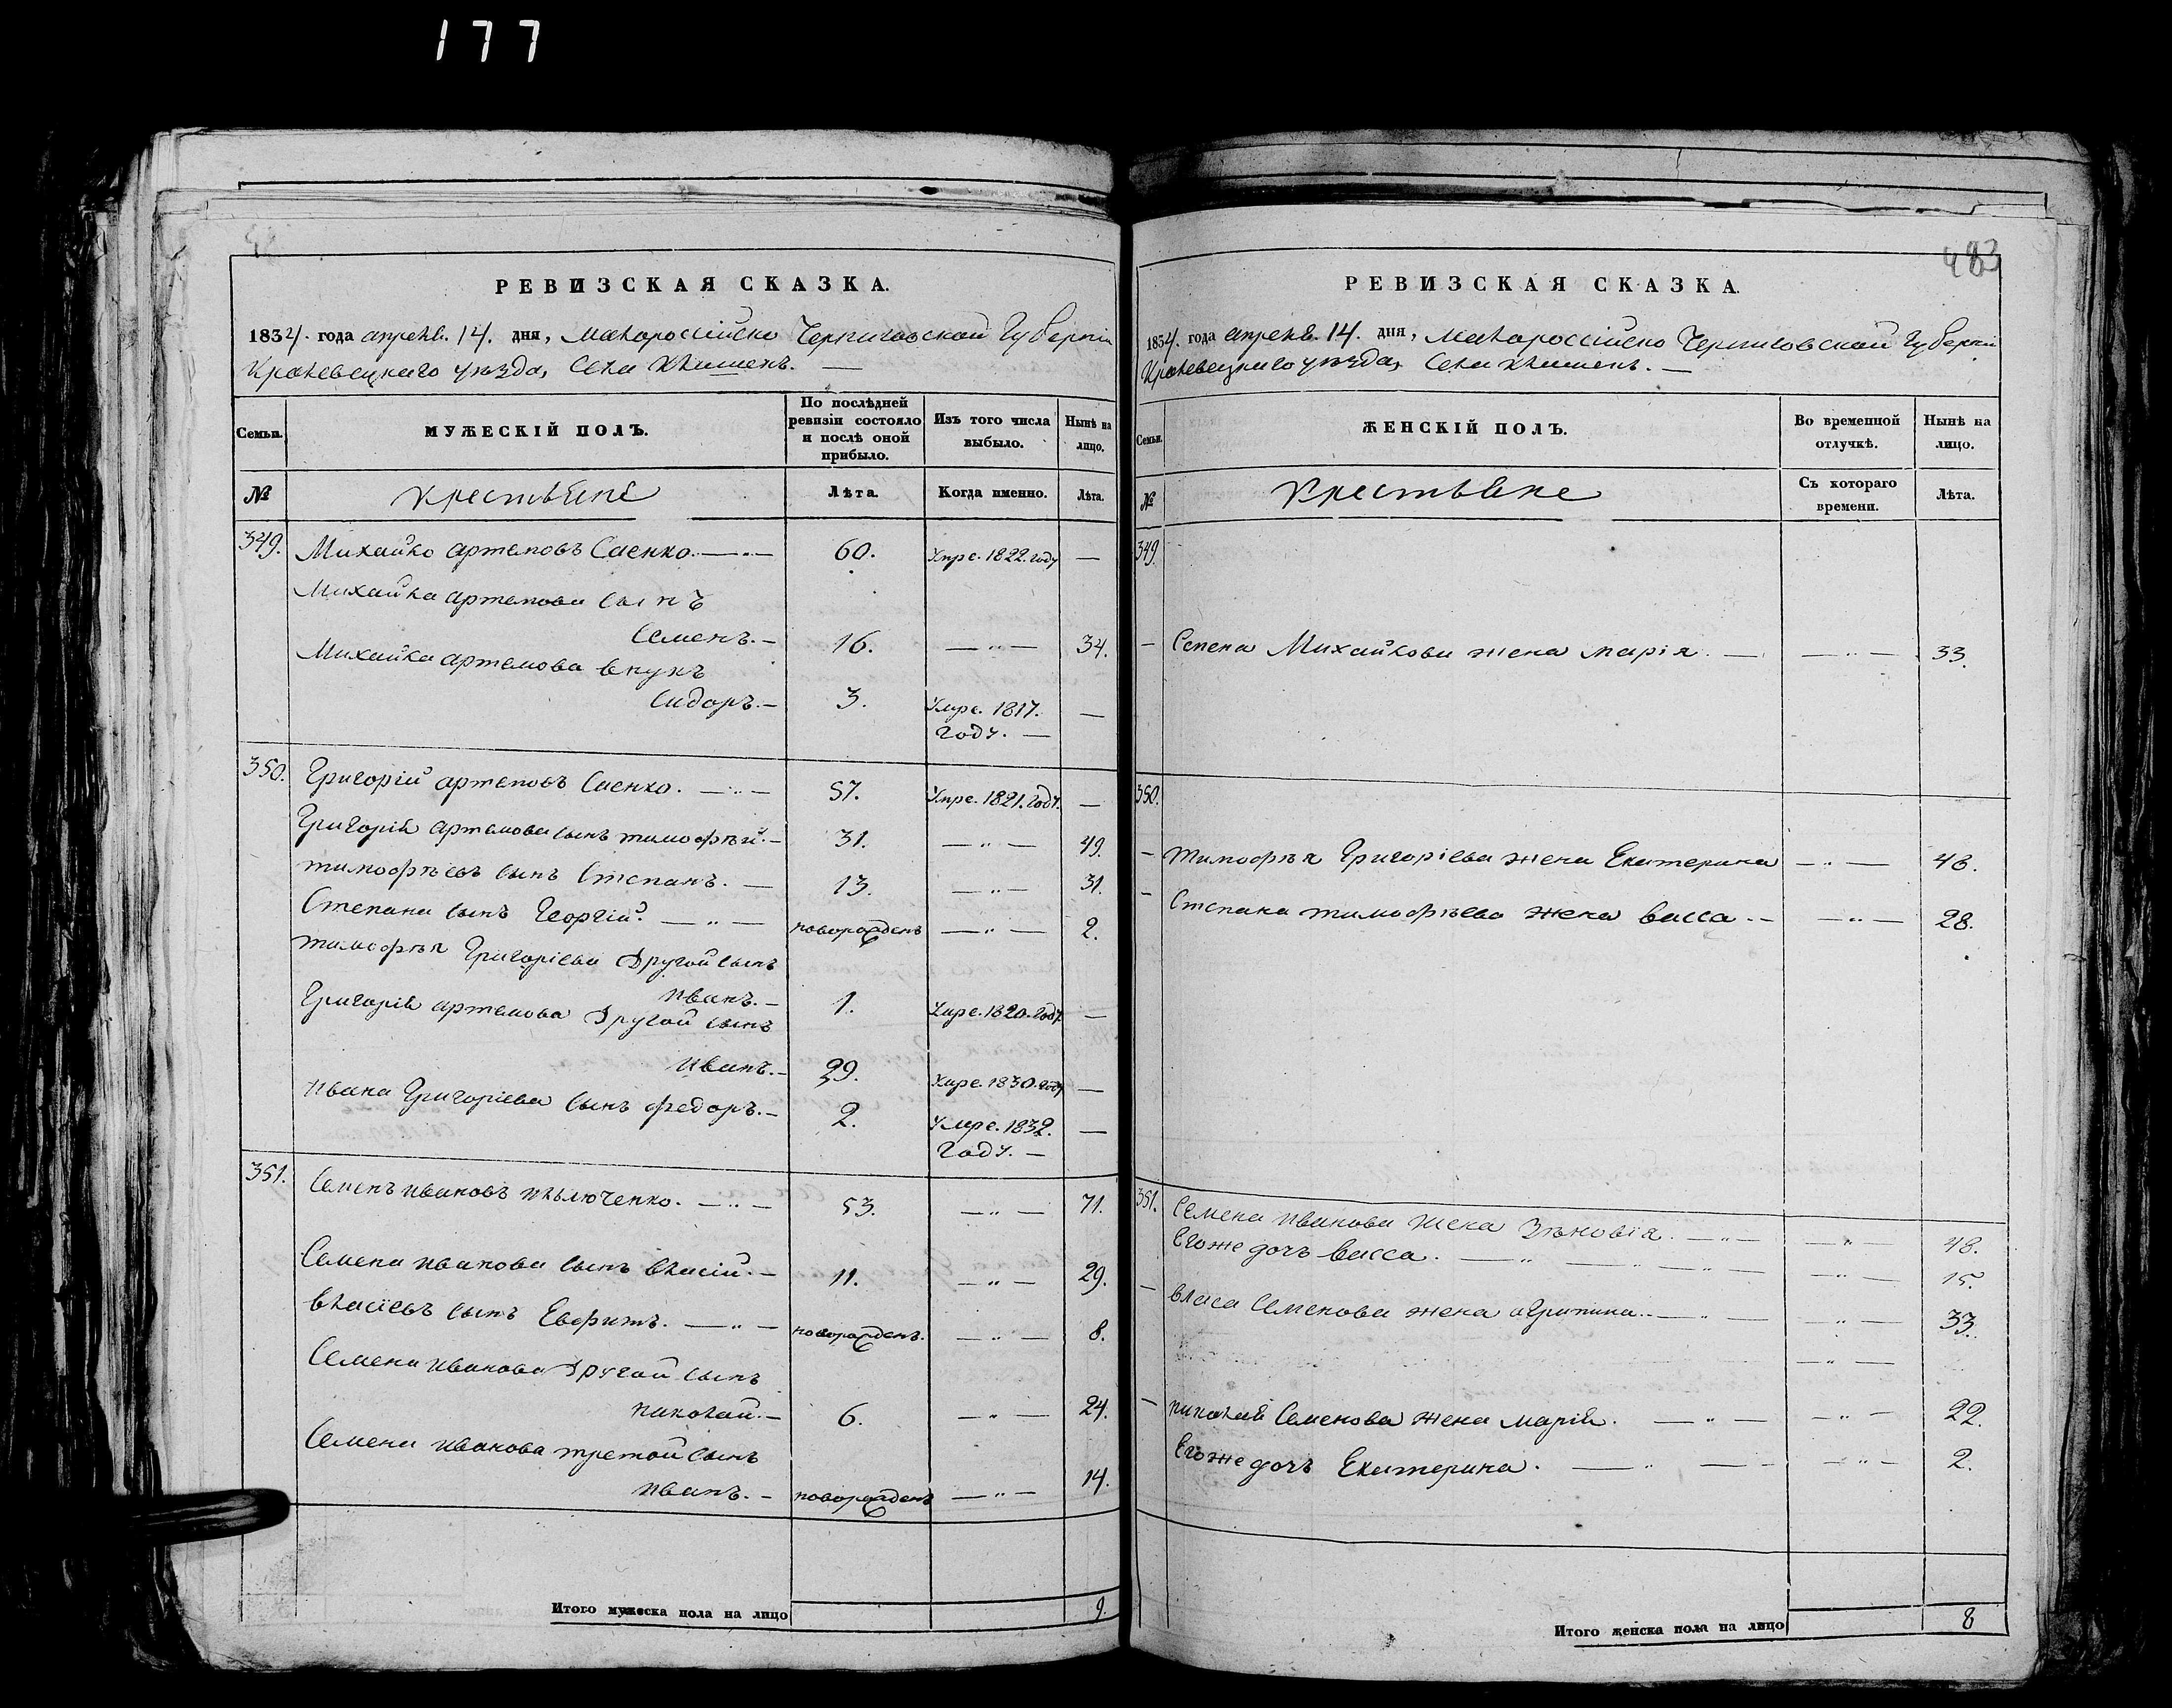 177
483
РЕВИЗСКАЯ СКАЗКА.
1834. года апреля. 14. дня, Малороссійско Черниговской Губерніи
Кролевецкаго уѣзда, Села Клишекъ. —
Семьи.
МУЖЕСКІЙ ПОЛЪ.
По послѣдней ревизіи состояло и послѣ оной прибыло.
Изъ того числа выбыло.
Нынѣ на лицо.
№
Крестьяне
Лѣта.
Когда именно.
Лѣта.
349. Михайло Артемовъ Саенко. — 60. Умре. 1822. году —
Михайла Артемова сынъ
Семенъ. — 16. — " — 34.
Михайла Артемова внукъ
Сидоръ. — 3. Умре. 1817. —
году. —
350. Григорій Артемовъ Саенко. — " — 57. Умре. 1821. году. —
Григорія Артемова сынъ Тимофѣй. — 31. — " — 49.
Тимофѣевъ сынъ Степанъ. — 13. — " — 31.
Степана сынъ Георгій. — " — новорожденъ — " — 2.
Тимофѣя Григоріева другой сынъ
Иванъ. — 1. Умре. 1820. году —
Григорія Артемова другой сынъ
Иванъ. — 29. Умре. 1830. году —
Ивана Григоріева сынъ Федоръ. — 2. Умре. 1832. —
году. —
351. Семенъ Ивановъ — " — 53. — " — 71.
Семена Иванова сынъ Власій. — 11. — " — 29.
Власіевъ сынъ — " — новорожденъ. — " — 8.
Семена Иванова другой сынъ
Николай. — 6. — " — 24.
Семена Иванова третой сынъ
Иванъ. — новорожденъ — " — 14.
Итого мужеска пола на лицо 9.
РЕВИЗСКАЯ СКАЗКА.
1834. года апреля. 14. дня, Малороссійско Черниговской Губерніи
Кролевецкаго уѣзда, Села Клишекъ. —
Семьи.
ЖЕНСКІЙ ПОЛЪ.
Во временной отлучкѣ.
Нынѣ на лицо.
№
Крестьяне
Съ котораго времени.
Лѣта.
349.
— Семена Михайлова жена Марія. — — " — 33.
350.
— Тимофѣя Григоріева жена Екатерина — " — 48.
— Степана Тимофѣева жена Васса. — — " — 28.
351. Семена Иванова жена Зѣновія. — " — — " — 48.
Егоже дочь Васса. — " — — " — 15.
— Власа Семенова жена Агрипина. — " — — " — 33.
— " —
— Николая Семенова жена Марія. — " — — " — 22.
Егоже дочь Екатерина. — " — — " — 2.
Итого женска пола на лицо 8